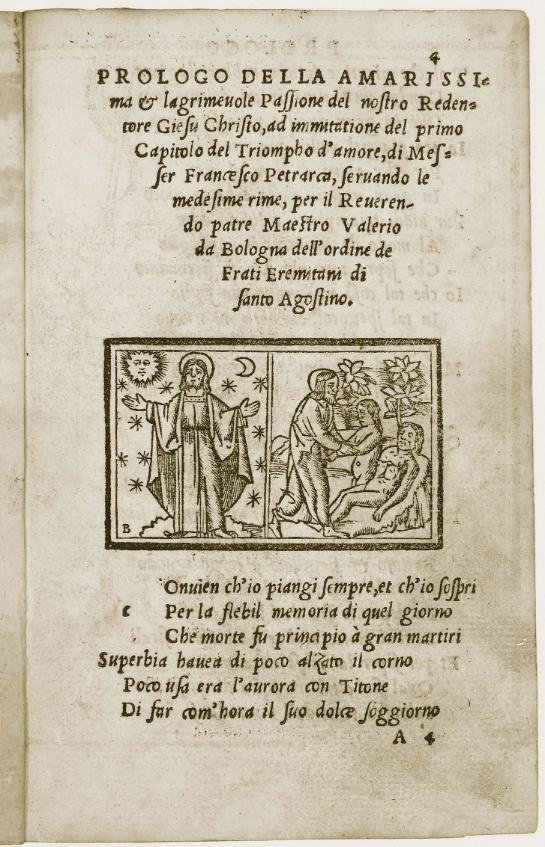 4
PROLOGO DELLA AMARISSI=
ma & lagrimeuole Passione del nostro Reden=
tore Giesu Christo, ad immutatione del primo
Capitolo del Triompho d'amore, di Mes=
ser Francesco Petrarca, seruando le
medesime rime, per il Reueren-
do patre Maestro Valerio
da Bologna dell'ordine de
Frati Eremitani di
santo Agostino.
B
Onuien ch'io piangi sempre, et ch'io sospri
c Per la flebil memoria di quel giorno
Che morte fu principio à gran martiri
Superbia hauea di poco alzato il corno
Poco usa era l'aurora con Titone
Di far com'hora il suo dolce soggiorno
A 4